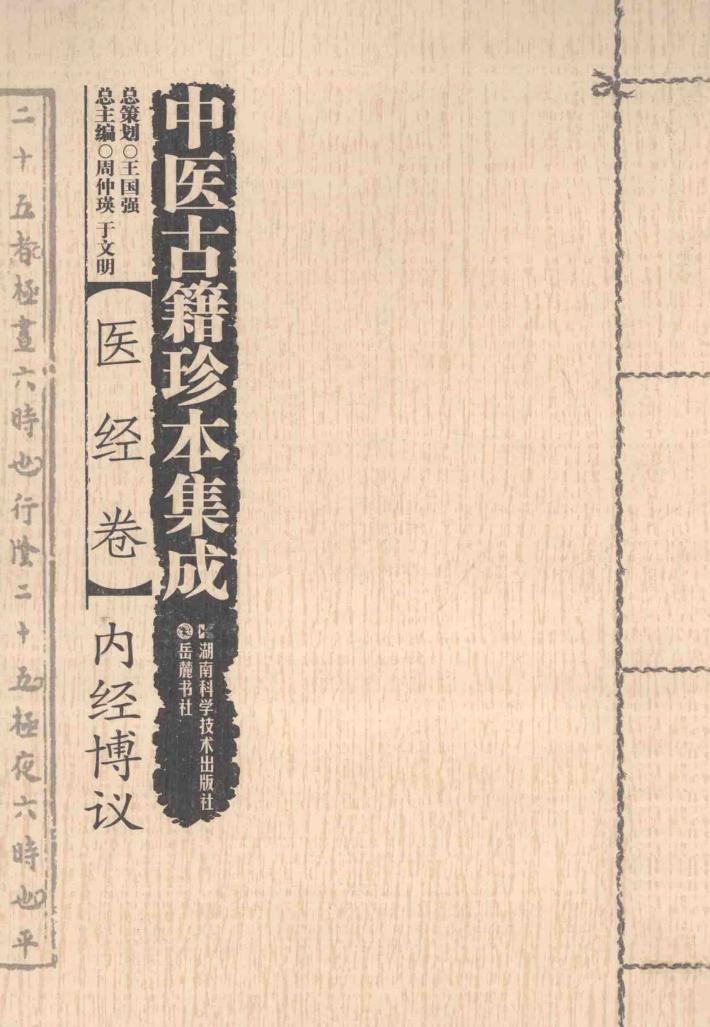 中医古籍珍本集成
湖南科学技术出版社
岳麓书社
总策划○王国强
总主编○周仲瑛 于文明
【医经卷】内经博议
二十五椿極晝六時也行陰二十五極夜六時也平